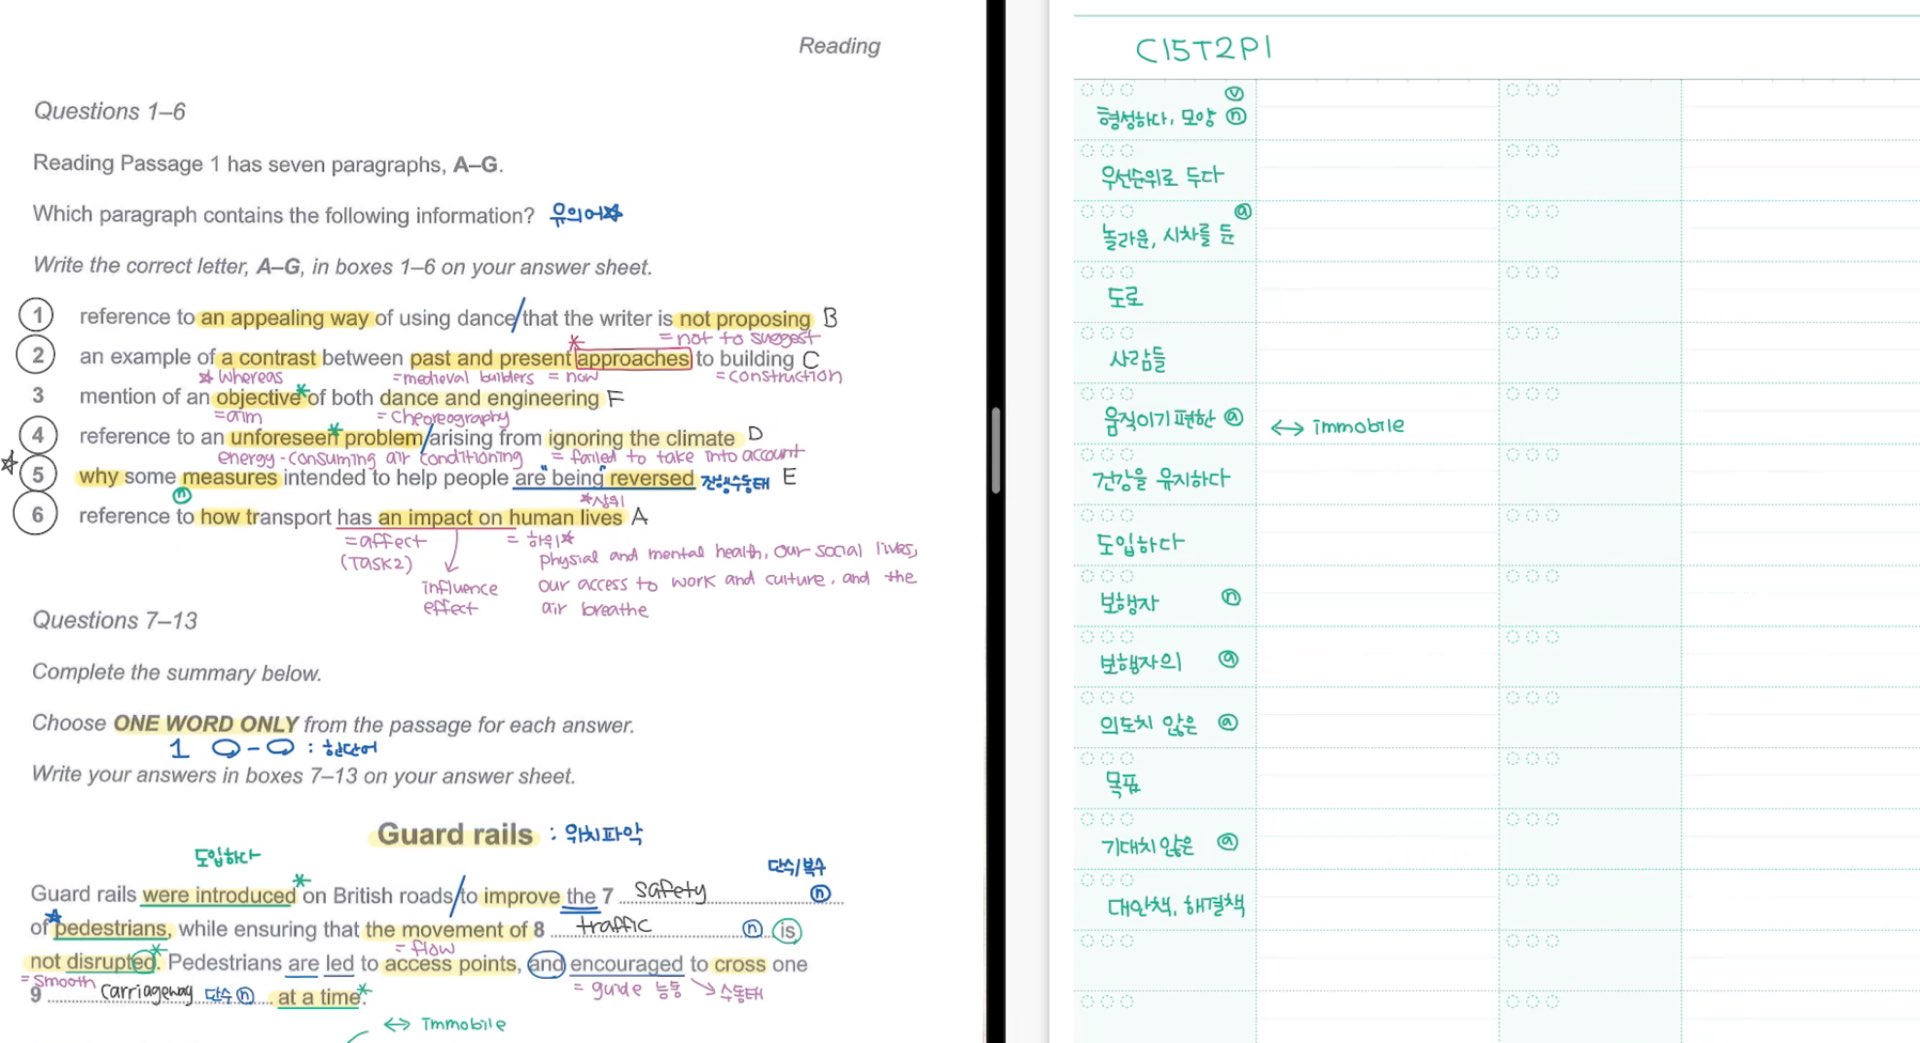 Reading
Questions 1–6
Reading Passage 1 has seven paragraphs, A–G.
Which paragraph contains the following information? 유의어
Write the correct letter, A–G, in boxes 1–6 on your answer sheet.
1 reference to an appealing way of using dance/that the writer is not proposing B
= not to suggest
2 an example of a contrast between past and present approaches to building C
whereas =medieval builders = now =construction
3 mention of an objective* of both dance and engineering F
=aim = cheoreography
4 reference to an unforeseen* problem/arising from ignoring the climate D
energy-consuming air conditioning = failed to take into account
5 why some measures intended to help people are "being" reversed 진행수동태 E
n *상위
6 reference to how transport has an impact on human lives A
=affect = 하위*
(TASK2) physial and mental health, our social lives,
influence our access to work and culture, and the
effect air breathe
Questions 7–13
Complete the summary below.
Choose ONE WORD ONLY from the passage for each answer.
1 : 한단어
Write your answers in boxes 7–13 on your answer sheet.
Guard rails : 위치파악
도입하다 단수/복수
Guard rails were introduced* on British roads/to improve the 7 safety n
of pedestrians, while ensuring that the movement of 8 traffic n is
= flow
not disrupted.* Pedestrians are led to access points, and encouraged to cross one
=smooth = guide 능동 수동태
9 carriageway 단수 n at a time*.
↔ immobile
C15T2P1
v
형성하다, 모양 n
우선순위로 두다
a
놀라운, 시차를 둔
도로
사람들
움직이기 편한 a ↔ immobile
건강을 유지하다
도입하다
보행자 n
보행자의 a
의도치 않은 a
목표
기대치 않은 a
대안책, 해결책